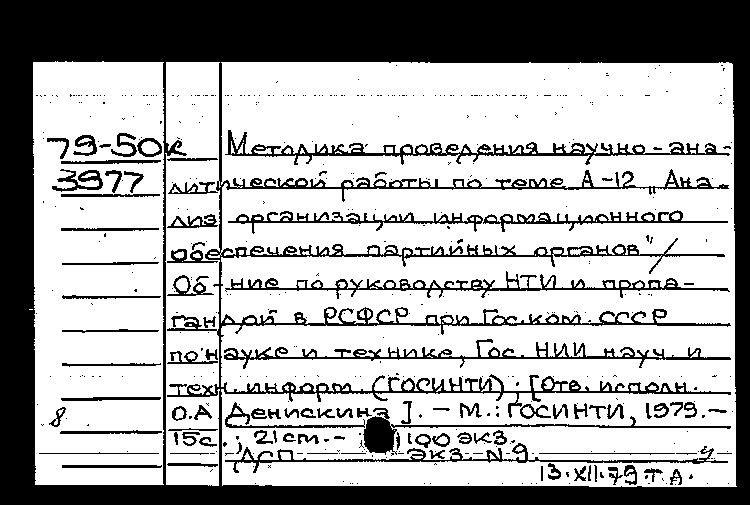 79-50к Методика проведения научно-ана-
3977 литической работы по теме А-12 „Ана-
лиз организации информационного
обеспечения партийных органов"/
Об-ние по руководству НТИ и пропа-
гандой в РСФСР при Гос.ком. СССР
по науке и технике, Гос. НИИ науч. и
техн. информ. (ГОСИНТИ); [Отв. исполн.
8 О.А Денискина]. - М.: ГОСИНТИ, 1979.-
15с.; 21см.- 100 экз.
Дсп. экз. N9.
13.XII.79 Т.А.